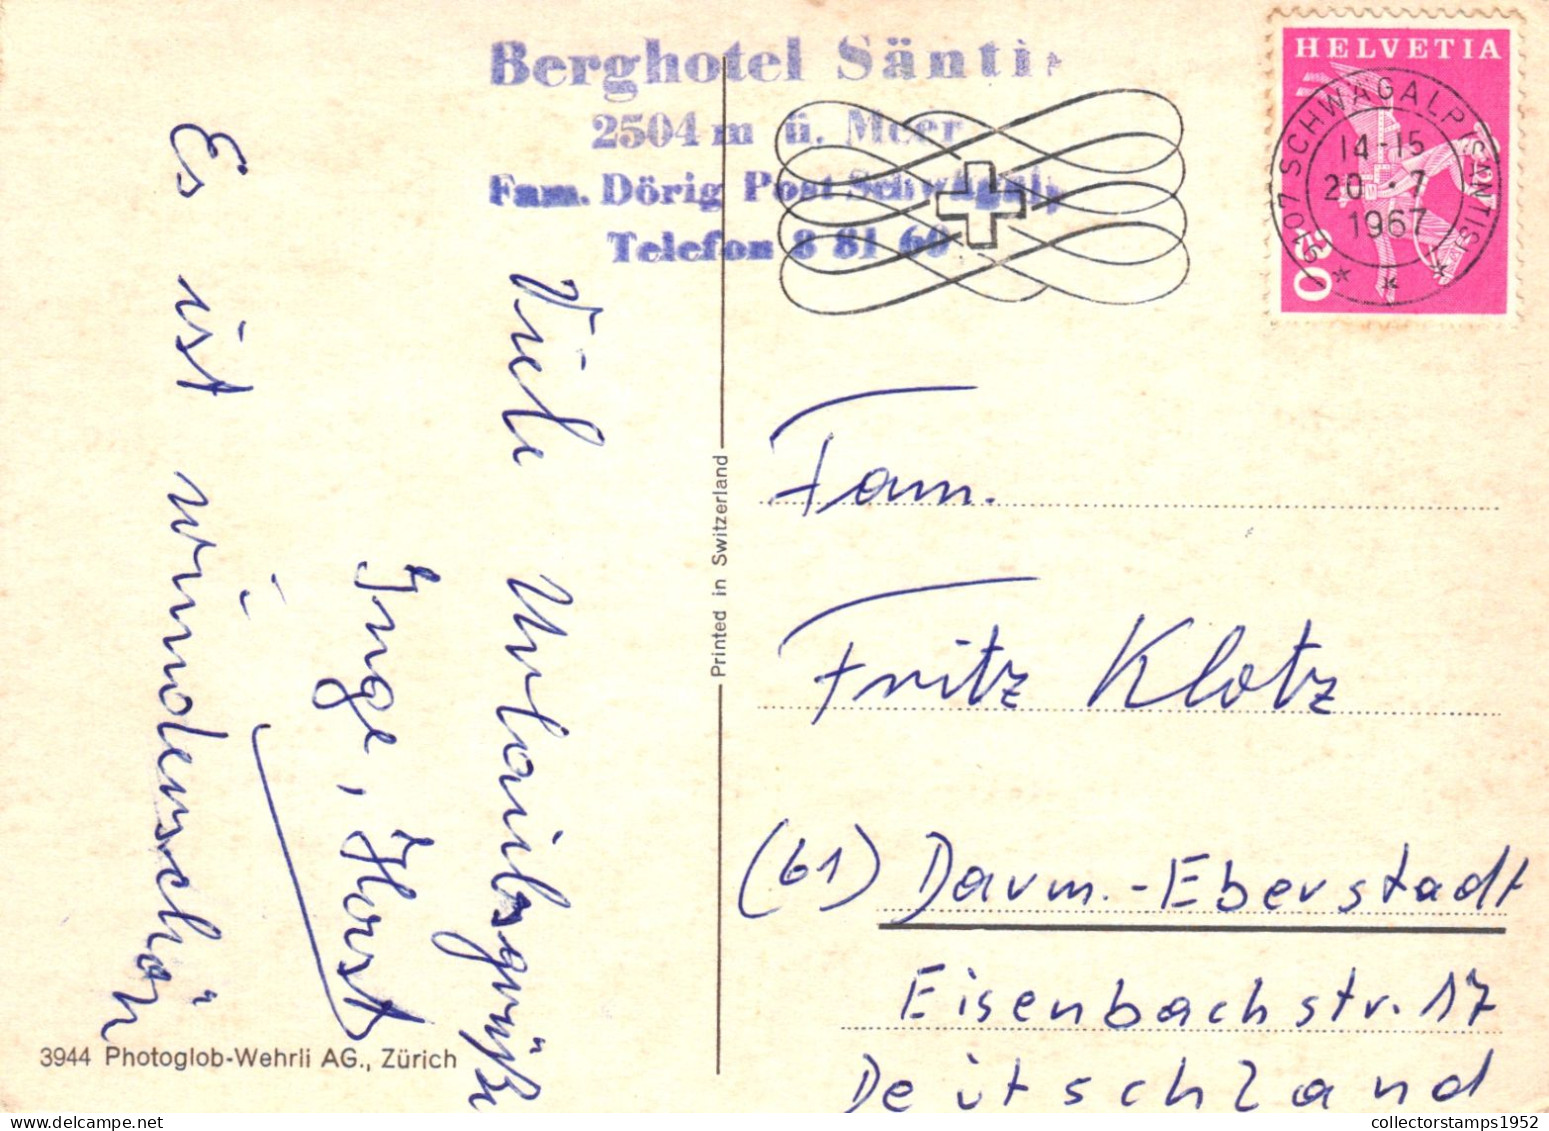 Berghotel Säntis
2504 m ü. Meer
Fam. Dörig Post Schwägalp
Telefon 8 81 60
HELVETIA
30
9107 SCHWÄGALP (SÄNTIS)
14-15
20.·7
1967
Viele Urlaubsgrüße
Inge, Horst
Es ist wunderschön
Printed in Switzerland
Fam.
Fritz Klotz
(61) Darm.-Eberstadt
Eisenbachstr. 17
Deutschland
3944 Photoglob-Wehrli AG., Zürich
collectorstamps1952